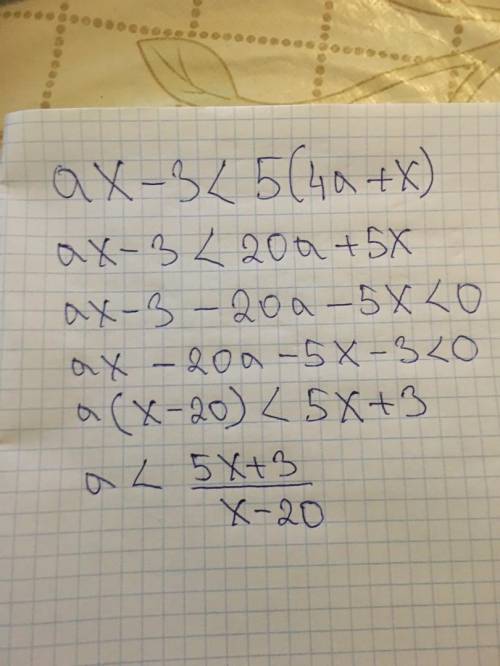 ax - 3 < 5(4a + x)
ax - 3 < 20a + 5x
ax - 3 - 20a - 5x < 0
ax - 20a - 5x - 3 < 0
a(x - 20) < 5x + 3
a < \frac{5x+3}{x-20}